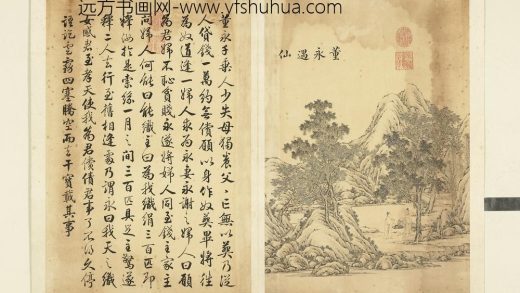 远方书画网-www.yfshuhua.com
董永遇仙
董永千乘人少失母獨養父〻亡無以葬乃從
人貸錢一萬約無償願以身作奴葬畢將往
為奴道逢一婦人求為永妻永謝之婦人曰願
為君婦不恥貧賤永遂將婦人同至錢主家主
問婦人何能曰能織主曰為我織絹三百匹即
釋汝於是索絲一月之間三百匹具足主驚遂
釋二人去行至舊相逢處乃謂永曰我天之織
女感君至孝天使我為君償債君事了不得久停
語訖雲霧四塞騰空而去干寶載其事